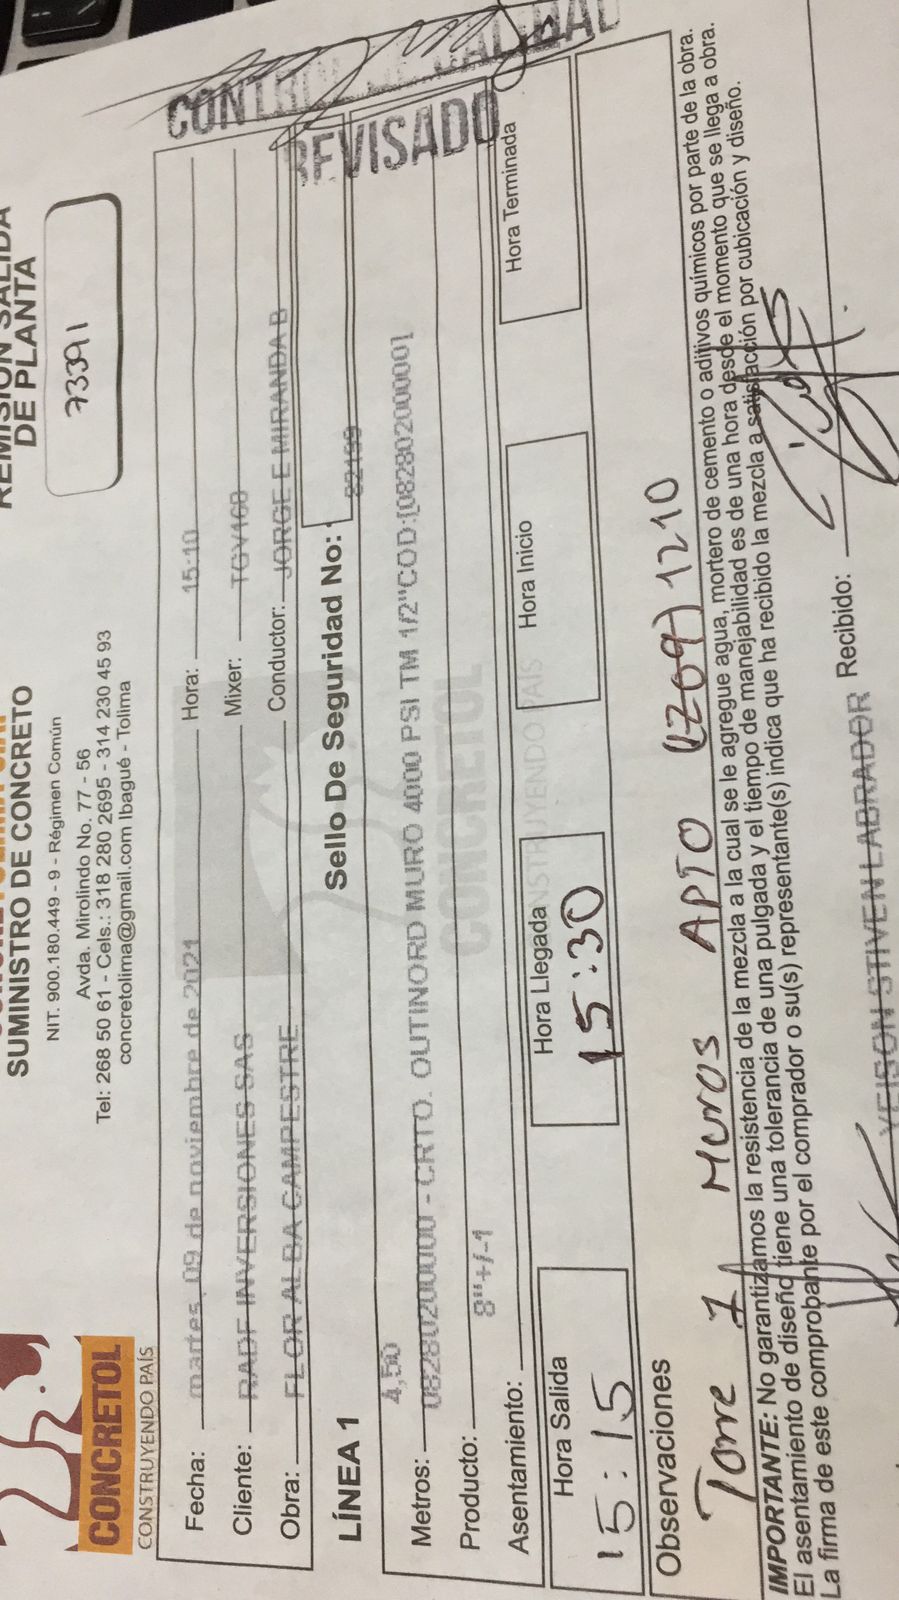 CONCRETOL
CONSTRUYENDO PAÍS
SUMINISTRO DE CONCRETO
NIT. 900.180.449 - 9 - Régimen Común
Avda. Mirolindo No. 77 - 56
Tel: 268 50 61 - Cels.: 318 280 2695 - 314 230 45 93
concretolima@gmail.com Ibagué - Tolima
REMISIÓN SALIDA
DE PLANTA
73391
CONTROL DE CALIDAD
REVISADO
Fecha: martes, 09 de noviembre de 2021 Hora: 15:10
Cliente: RADF INVERSIONES SAS Mixer: TGV160
Obra: FLOR ALBA CAMPESTRE Conductor: JORGE E MIRANDA B
LÍNEA 1 Sello De Seguridad No: 82199
Metros: 4,50
Producto: 0828020000 - CRTO. OUTINORD MURO 4000 PSI TM 1/2"COD:[0828020000]
Asentamiento: 8"+/-1
Hora Salida 15:15
Hora Llegada 15:30
Hora Inicio
Hora Terminada
CONCRETOL
CONSTRUYENDO PAÍS
Observaciones
Torre 7 Muros APTO 1209 1210
IMPORTANTE: No garantizamos la resistencia de la mezcla a la cual se le agregue agua, mortero de cemento o aditivos químicos por parte de la obra.
El asentamiento de diseño tiene una tolerancia de una pulgada y el tiempo de manejabilidad es de una hora desde el momento que se llega a obra.
La firma de este comprobante por el comprador o su(s) representante(s) indica que ha recibido la mezcla a satisfacción por cubicación y diseño.
YEISON STIVEN LABRADOR Recibido: